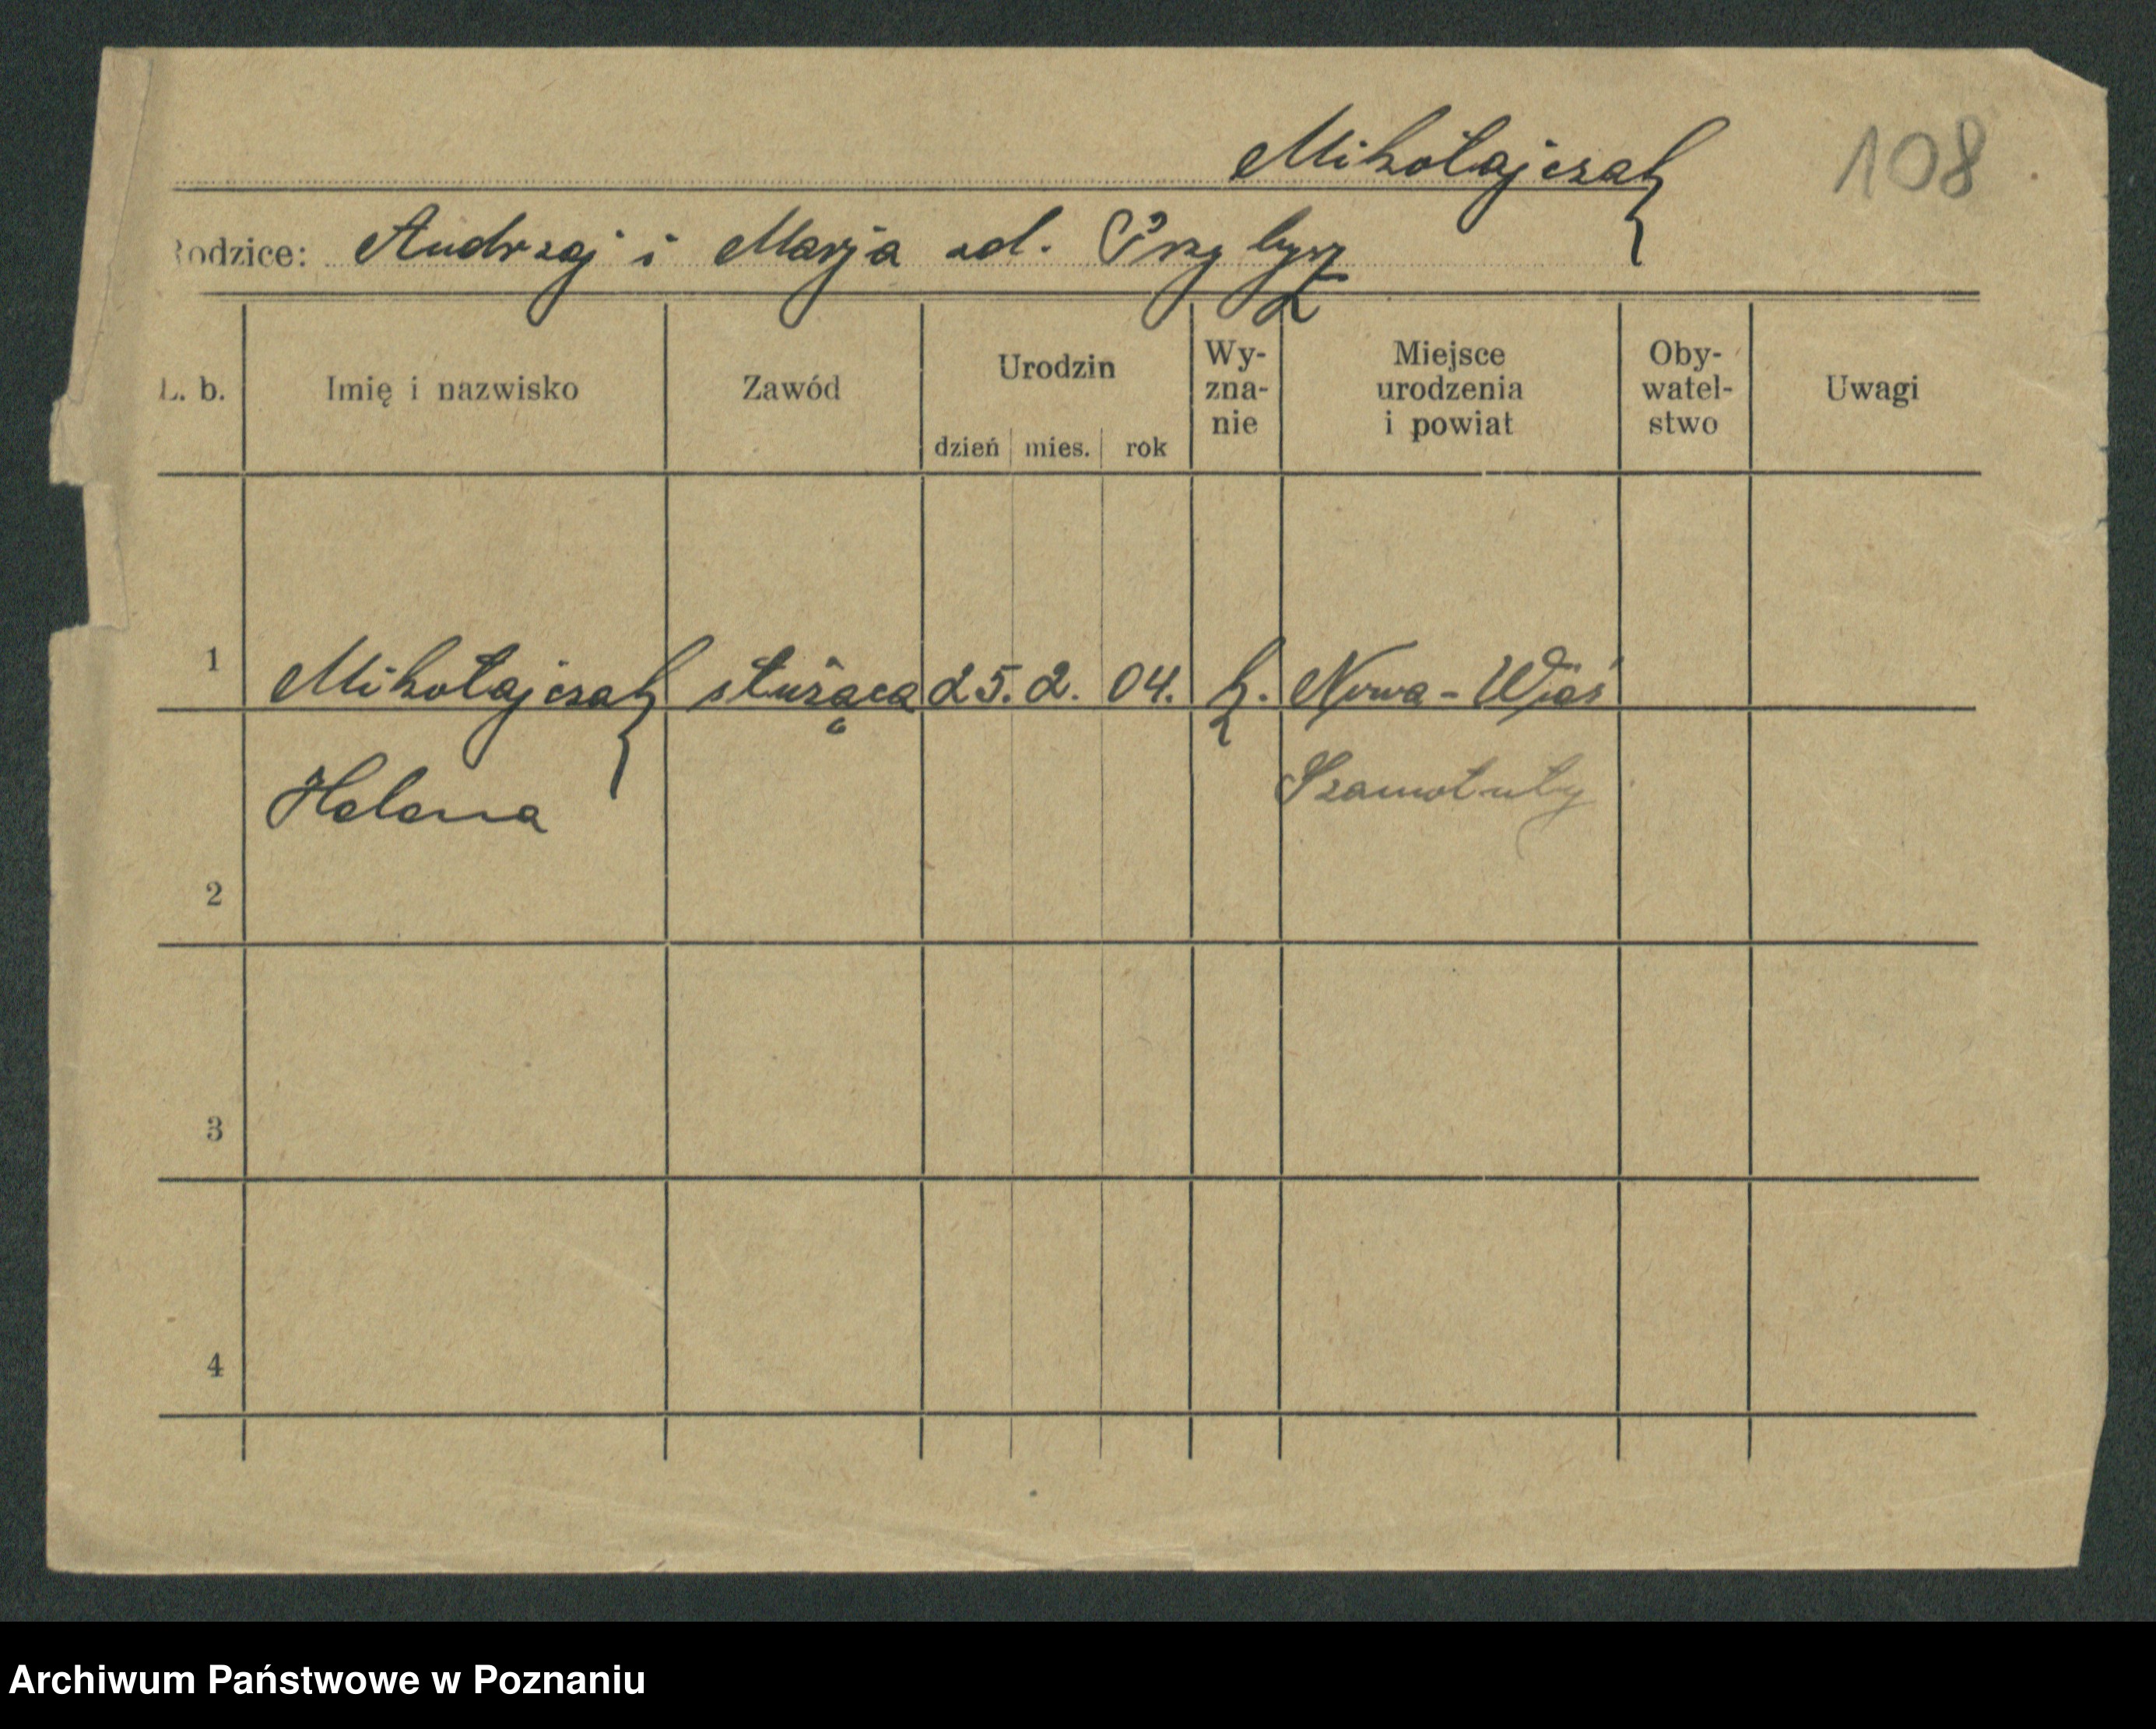 Mikołajczak
108
Rodzice: Andrzej i Marja zd. Przybysz
L. b.
Imię i nazwisko
Zawód
Urodzin
dzień mies. rok
Wy-
zna-
nie
Miejsce
urodzenia
i powiat
Oby-
watel-
stwo
Uwagi
1 Mikołajczak służąca 25. 2. 04. k. Nowa-Wieś
Helena Szamotuły
2
3
4
Archiwum Państwowe w Poznaniu